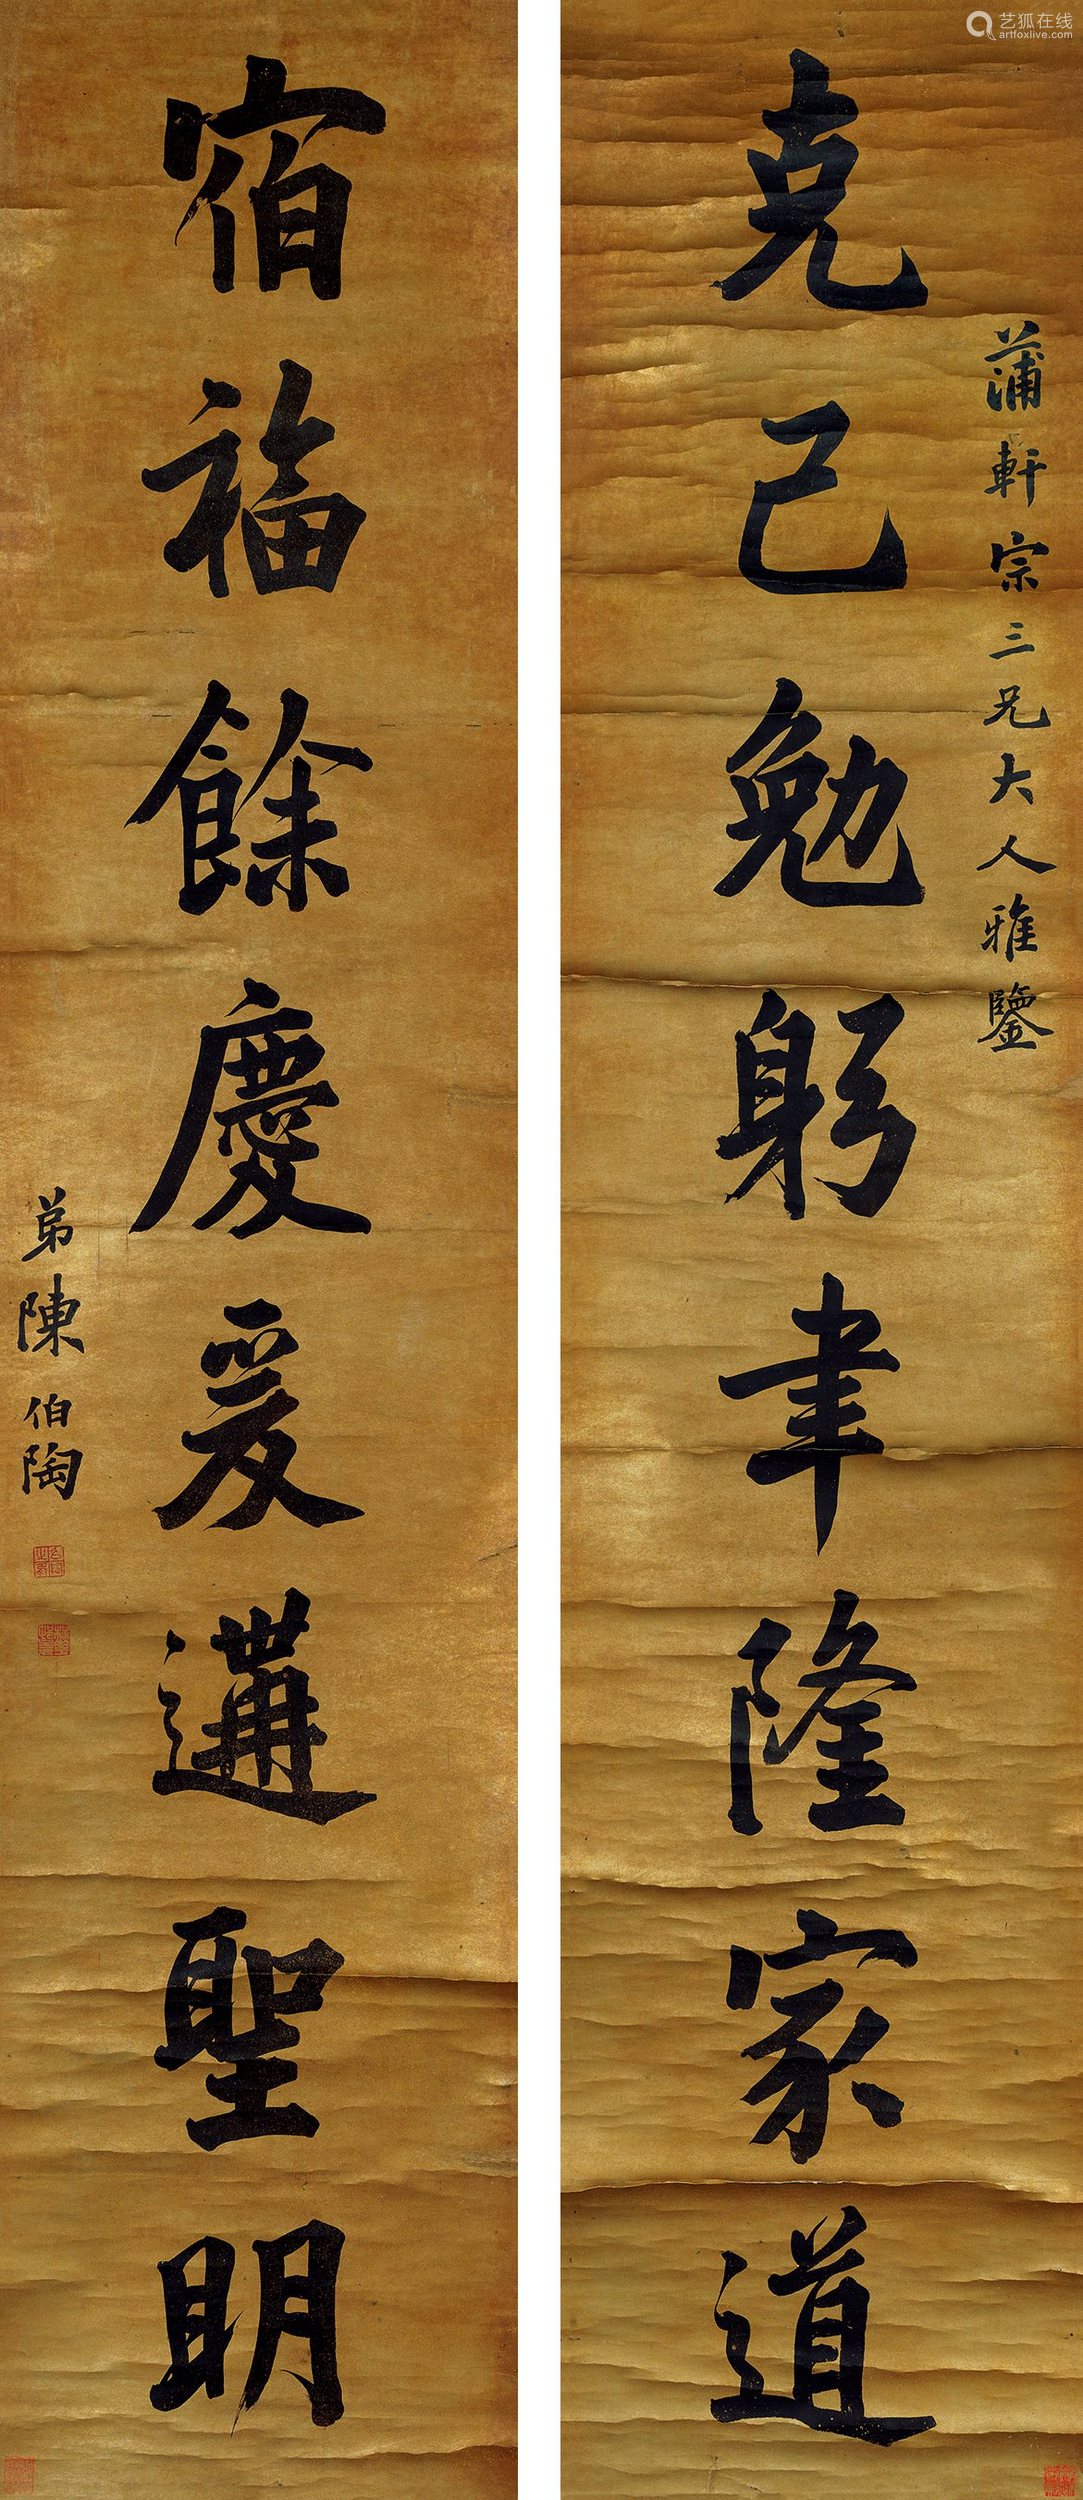 克己勉躬聿隆家道
蒲軒宗三兄大人雅鑒
宿福餘慶爰遘聖明
弟陳伯陶
艺狐在线
artfoxlive.com